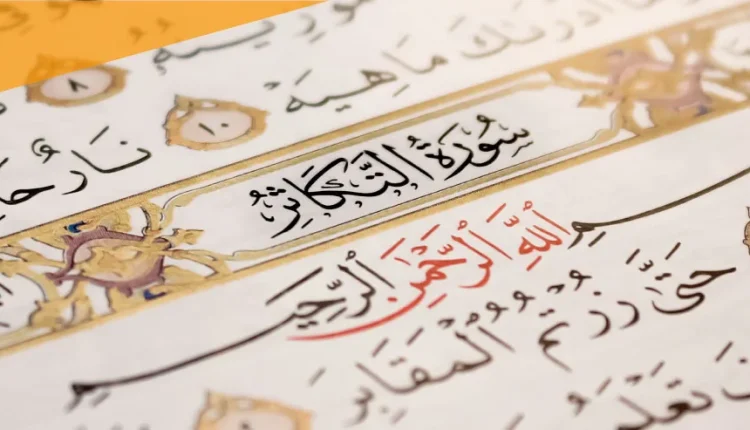 ٨
أَدْرَىٰكَ مَا هِيَهْ ١٠ نَارٌ
سُورَةُ التَّكَاثُرِ
ـمِ ٱللَّهِ ٱلرَّحْمَٰنِ ٱلرَّحِيمِ
حَتَّىٰ زُرْتُمُ ٱلْمَقَابِرَ
تَعْلَمُو